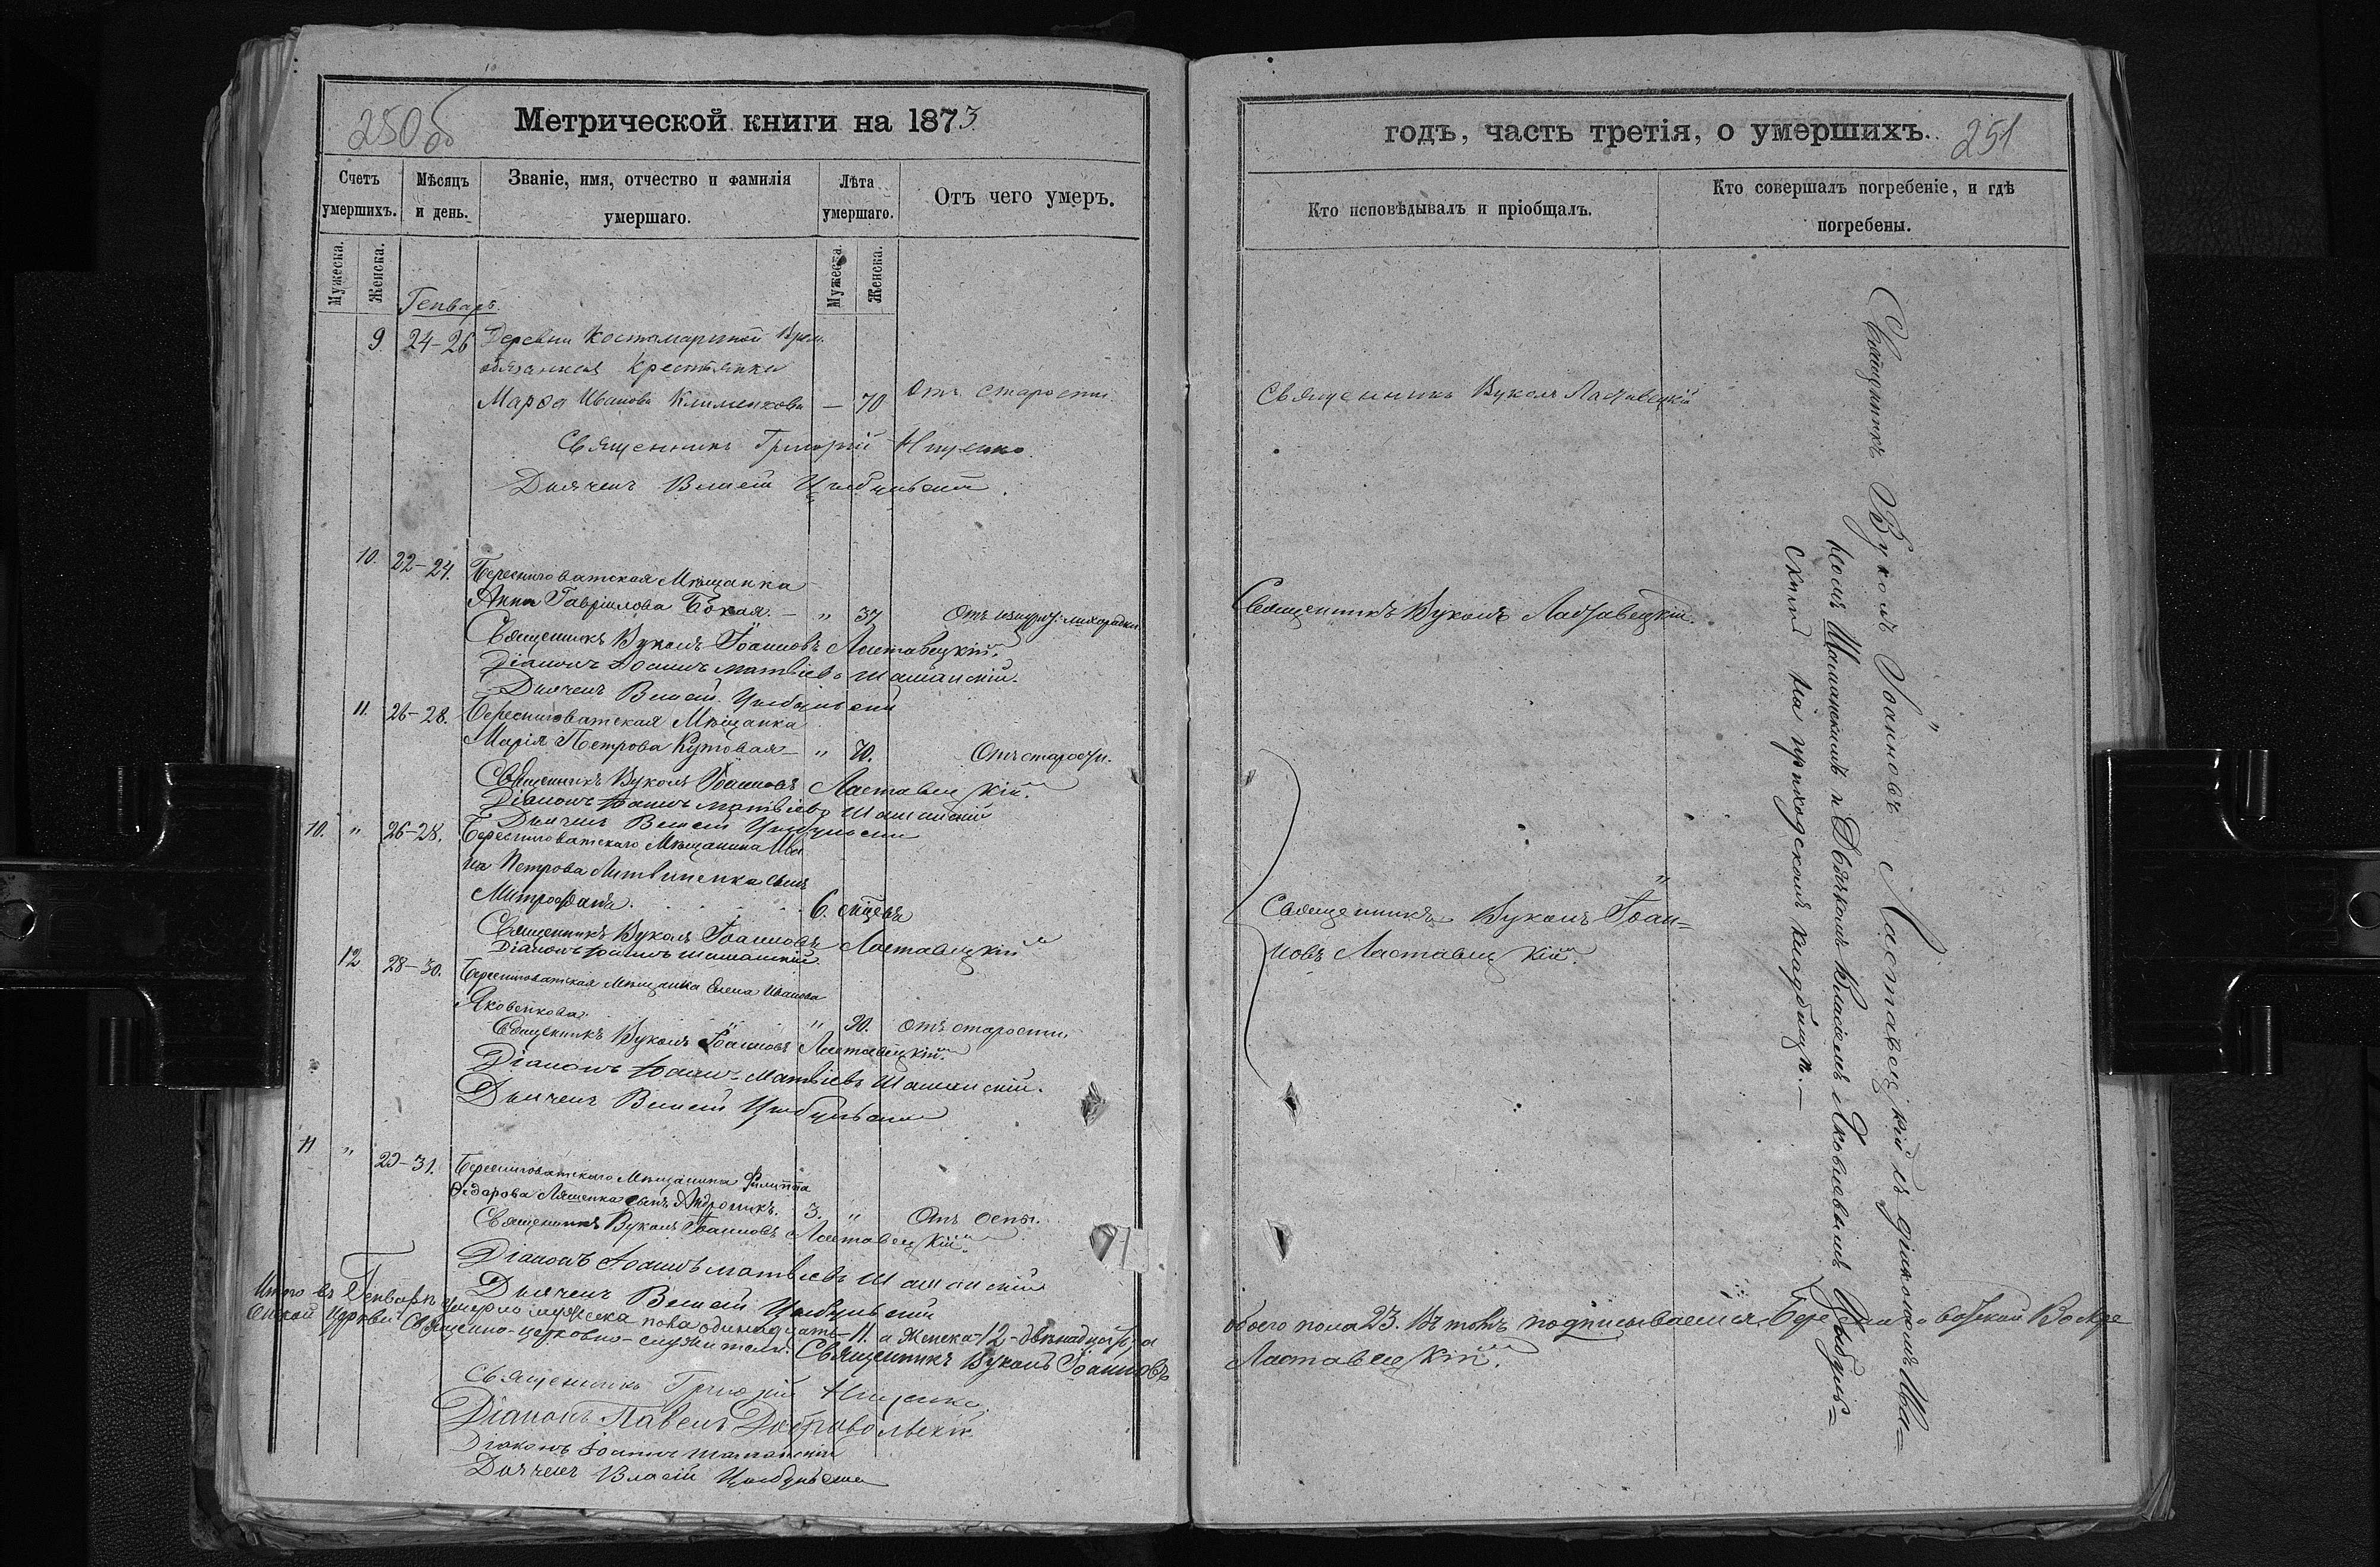 250об
Метрической книги на 1873
Счетъ умершихъ.
Мѣсяцъ и день.
Званіе, имя, отчество и фамилія умершаго.
Лѣта умершаго.
Отъ чего умеръ.
Мужеска.
Женска.
Мужеска.
Женска.
Генварь.
9. 24-26 Деревни Костомариной Врем.
обязанная Крестьянка
Марѳа Иванова Клименкова — 70 Отъ старости
Священникъ Григорій Ищенко.
Дьячекъ Власій Цыбульскій.
10. 22-24. Березниговатская Мѣщанка
Анна Гавріилова Бокая. — " 37 Отъ лихорадки
Священникъ Вуколъ Іоанновъ Ластавецкій.
Діаконъ Іоаннъ Матвіевъ Шаманскій.
Дьячекъ Власій Цыбульскій
11. 26-28. Березниговатская Мѣщанка
Марія Петрова Кутовая — " 70. Отъ старости.
Священникъ Вуколъ Іоанновъ Ластавецкій.
Діаконъ Іоаннъ Матвіевъ Шаманскій
Дьячекъ Власій Цыбульскій
10. " 26-28. Березниговатскаго Мѣщанина Ива
на Петрова Литвиненка сынъ
Митрофанъ. 6. мѣсяцевъ
Священникъ Вуколъ Іоанновъ Ластавецкій
Діаконъ Іоаннъ Шаманскій.
12 28-30. Березниговатская Мѣщанка Елена Иванова
Яковенкова. " 90. Отъ старости.
Священникъ Вуколъ Іоанновъ Ластавецкій.
Діаконъ Іоаннъ Матвіевъ Шаманскій.
Дьячекъ Власій Цыбульскій
11 " 29-31. Березниговатскаго Мѣщанина Филиппа
Ѳедорова Ляшенка сынъ Андроникъ. 3. " Отъ оспы.
Священникъ Вуколъ Іоанновъ Ластавецкій.
Діаконъ Іоаннъ Матвіевъ Шаманскій
Дьячекъ Власій Цыбульскій
Итого въ Генварѣ умерло мужеска пола одинадцать-11. а Женска-12-двѣнадцать, а
Церкви Священно-церковно-служители: Священникъ Вуколъ Іоанновъ
Священникъ Григорій Ищенко.
Діаконъ Павелъ Добровольскій
Діаконъ Іоаннъ Шаманскій
Дьячекъ Власій Цыбульскій
годъ, часть третія, о умершихъ.
251
Кто исповѣдывалъ и пріобщалъ.
Кто совершалъ погребеніе, и гдѣ погребены.
Священникъ Вуколъ Ластавецкій
Священникъ Вуколъ Ластавецкій.
Священникъ Вуколъ Іоан=
новъ Ластавецкій.
Священникъ Вуколъ Іоанновъ Ластавецкій съ діакономъ Ива=
номъ Шаманскимъ и Дьячкомъ Власіемъ Яковлевымъ Цыбуль=
скимъ на приходскомъ кладбищѣ.—
обоего пола 23. Въ томъ подписываемся, Воскре
Ластавецкій.